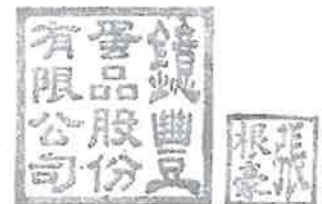 鏡豐
蛋品股份
有限公司
張
根豪